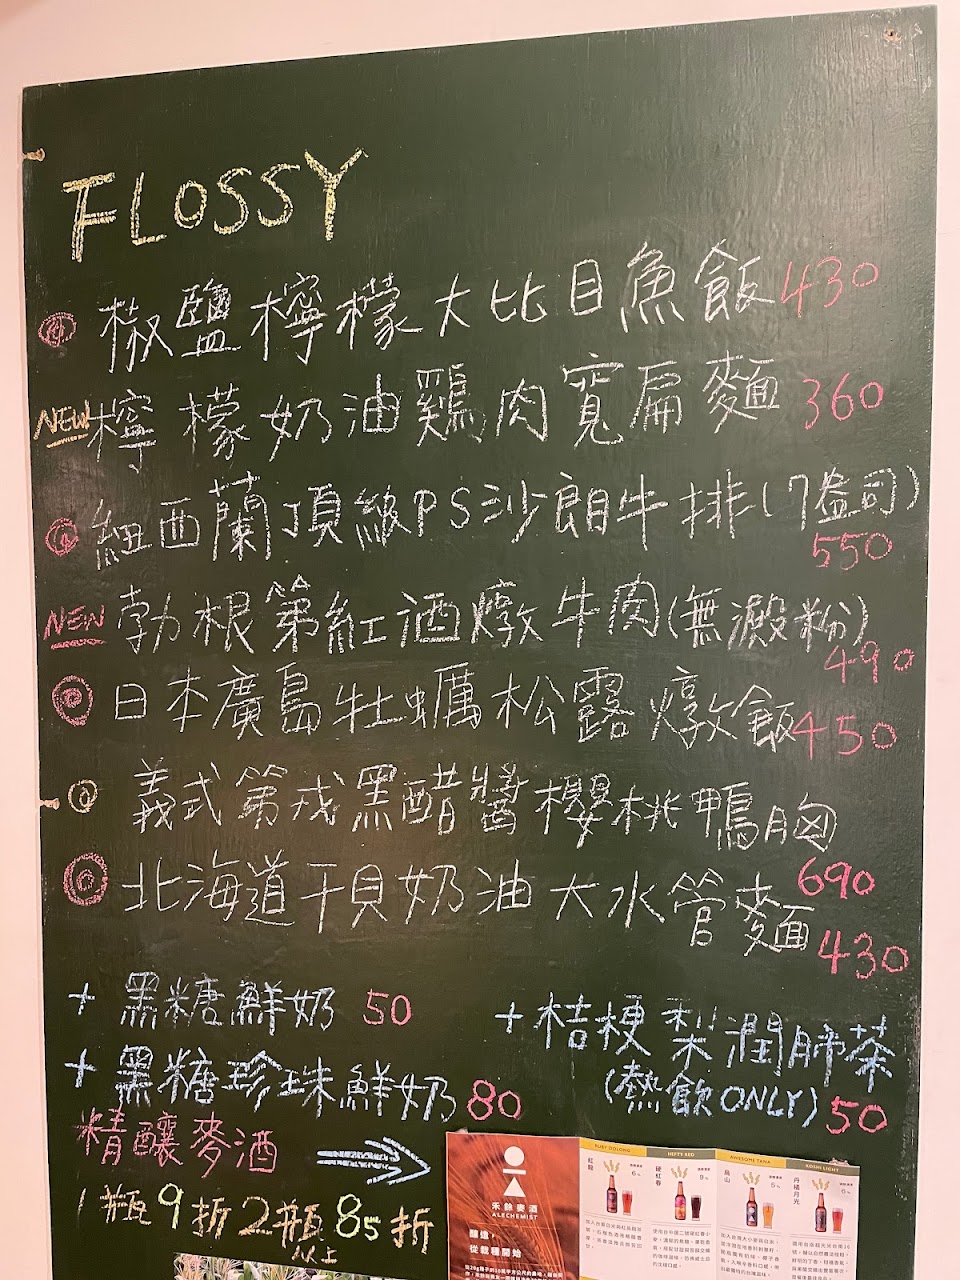 FLOSSY
椒鹽檸檬大比目魚飯 430
NEW 檸檬奶油鷄肉寬扁麵 360
紐西蘭頂級PS沙朗牛排(7盎司)
550
NEW 勃根第紅酒燉牛肉(無澱粉)
490
日本廣島牡蠣松露燉飯 450
義式第戎黑醋醬櫻桃鴨胸
690
北海道干貝奶油大水管麵
430
+ 黑糖鮮奶 50
+ 桔梗梨潤肺茶
(熱飲ONLY) 50
+ 黑糖珍珠鮮奶 80
精釀麥酒
1瓶9折 2瓶85折
以上
禾餘麥酒
ALECHEMIST
釀造,
從栽種開始
RUBY OOLONG
紅龍
6%
HEFTY RED
硬紅春
9%
AWESOME TANK
5%
KOSHI LIGHT
丹橘月光
6%